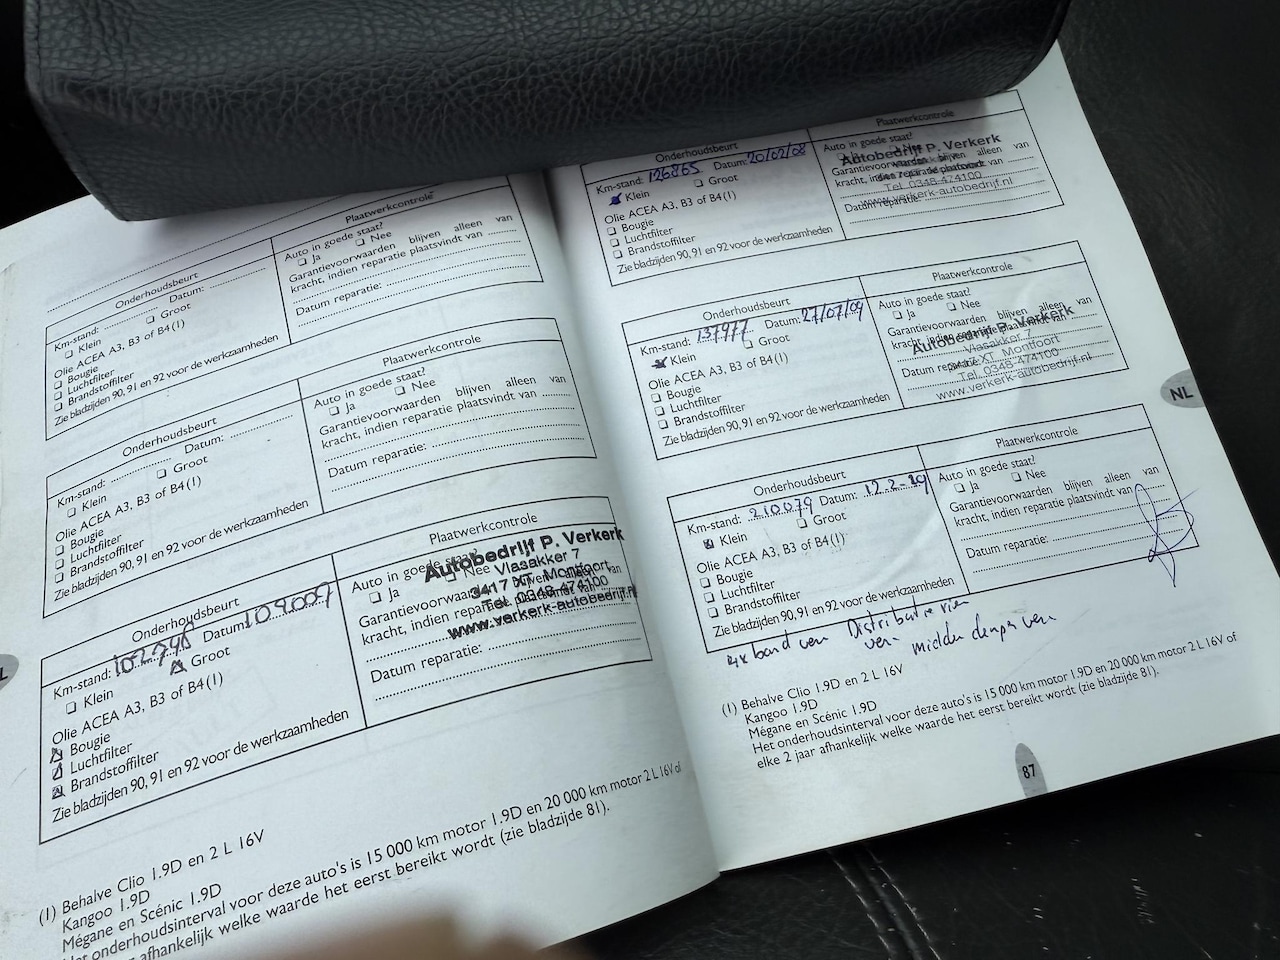 Plaatwerkcontrole
Onderhoudsbeurt
Km-stand: Datum:
Klein Groot
Olie ACEA A3, B3 of B4(1)
Bougie
Luchtfilter
Brandstoffilter
Zie bladzijden 90, 91 en 92 voor de werkzaamheden
Auto in goede staat?
Ja Nee
Garantievoorwaarden blijven alleen van
kracht, indien reparatie plaatsvindt van
Datum reparatie:
Onderhoudsbeurt
Km-stand: Datum:
Klein Groot
Olie ACEA A3, B3 of B4(1)
Bougie
Luchtfilter
Brandstoffilter
Zie bladzijden 90, 91 en 92 voor de werkzaamheden
Plaatwerkcontrole
Auto in goede staat?
Ja Nee
Garantievoorwaarden blijven alleen van
kracht, indien reparatie plaatsvindt van
Datum reparatie:
Onderhoudsbeurt
Km-stand: Datum
Klein Groot
Olie ACEA A3, B3 of B4(1)
Bougie
Luchtfilter
Brandstoffilter
Zie bladzijden 90, 91 en 92 voor de werkzaamheden
Plaatwerkcontrole
Auto in goede staat?
Ja Nee
Garantievoorwaarden
kracht, indien reparatie van
Datum reparatie:
Autobedrijf P. Verkerk
Vlasakker 7
3417 XT Montfoort
Tel. 0348-474100
www.verkerk-autobedrijf.nl
(1) Behalve Clio 1.9D en 2 L 16V
Kangoo 1.9D
Mégane en Scénic 1.9D
Het onderhoudsinterval voor deze auto's is 15 000 km motor 1.9D en 20 000 km motor 2 L 16V of
afhankelijk welke waarde het eerst bereikt wordt (zie bladzijde 81).
Onderhoudsbeurt
Km-stand: 126865 Datum: 20/02/08
Klein Groot
Olie ACEA A3, B3 of B4(1)
Bougie
Luchtfilter
Brandstoffilter
Zie bladzijden 90, 91 en 92 voor de werkzaamheden
Plaatwerkcontrole
Auto in goede staat?
Garantievoorwaarden blijven alleen van
kracht, indien van
Datum reparatie:
Autobedrijf P. Verkerk
Tel. 0348-474100
www.verkerk-autobedrijf.nl
Onderhoudsbeurt
Km-stand: 137977 Datum: 27/07/09
Klein Groot
Olie ACEA A3, B3 of B4(1)
Bougie
Luchtfilter
Brandstoffilter
Zie bladzijden 90, 91 en 92 voor de werkzaamheden
Plaatwerkcontrole
Auto in goede staat?
Ja Nee
Garantievoorwaarden blijven alleen van
kracht, indien van
Datum
Autobedrijf P. Verkerk
Vlasakker 7
XT Montfoort
Tel. 0348-474100
www.verkerk-autobedrijf.nl
NL
Onderhoudsbeurt
Km-stand: 210079 Datum:
Klein Groot
Olie ACEA A3, B3 of B4(1)
Bougie
Luchtfilter
Brandstoffilter
Zie bladzijden 90, 91 en 92 voor de werkzaamheden
Plaatwerkcontrole
Auto in goede staat?
Ja Nee
Garantievoorwaarden blijven alleen van
kracht, indien reparatie plaatsvindt van
Datum reparatie:
4x band ver Distributie rien
ver
(1) Behalve Clio 1.9D en 2 L 16V
Kangoo 1.9D
Mégane en Scénic 1.9D
Het onderhoudsinterval voor deze auto's is 15 000 km motor 1.9D en 20 000 km motor 2 L 16V of
elke 2 jaar afhankelijk welke waarde het eerst bereikt wordt (zie bladzijde 81).
87